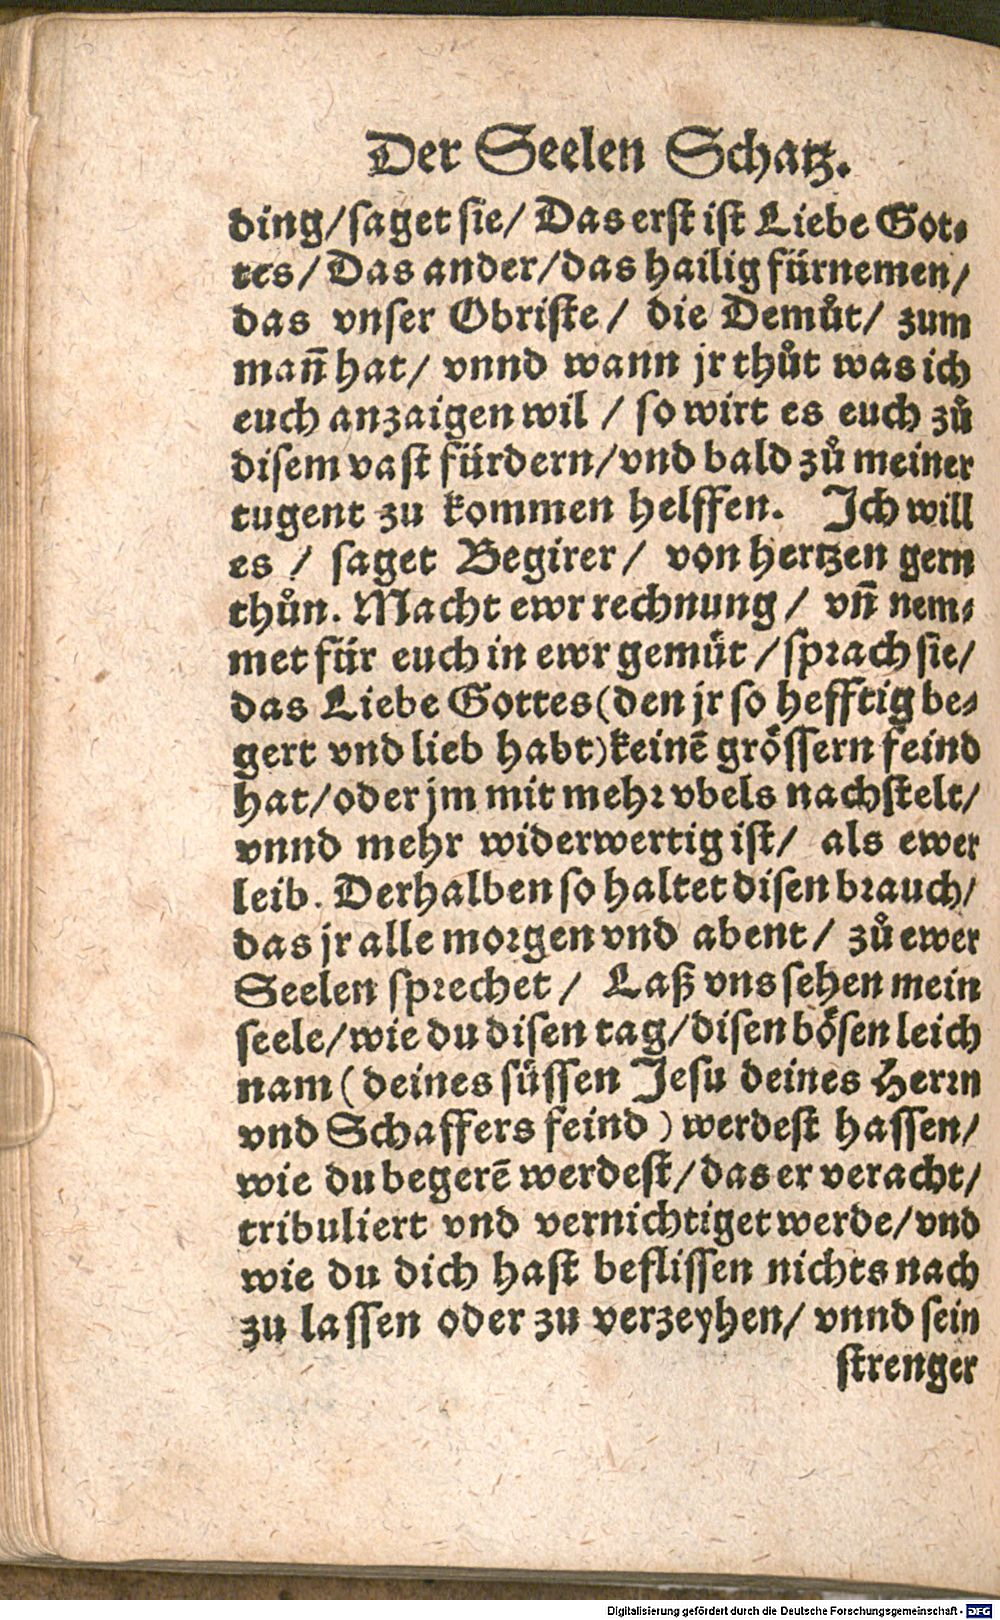 Der Seelen Schatz.
ding/ saget sie/ Das erst ist Liebe Got⸗
tes/ Das ander/ das hailig fürnemen/
das vnser Obriste/ die Demůt/ zum
man̄ hat/ vnnd wann jr thůt was ich
euch anzaigen wil / so wirt es euch zů
disem vast fürdern/ vnd bald zů meiner
tugent zu kommen helffen. Ich will
es / saget Begirer/ von hertzen gern
thůn. Macht ewr rechnung / vñ nem⸗
met für euch in ewr gemüt / sprach sie/
das Liebe Gottes (den jr so hefftig be⸗
gert vnd lieb habt) keinē grössern feind
hat/ oder jm mit mehr vbels nachstelt/
vnnd mehr widerwertig ist/ als ewer
leib. Derhalben so haltet disen brauch/
das jr alle morgen vnd abent/ zů ewer
Seelen sprechet / Laß vns sehen mein
seele/ wie du disen tag/ disen bösen leich
nam (deines süssen Jesu deines Herrn
vnd Schaffers feind ) werdest hassen/
wie du begerē werdest/ das er veracht/
tribuliert vnd vernichtiget werde/ vnd
wie du dich hast beflissen nichts nach
zu lassen oder zu verzeyhen/ vnnd sein
strenger
Digitalisierung gefördert durch die Deutsche Forschungsgemeinschaft - DFG